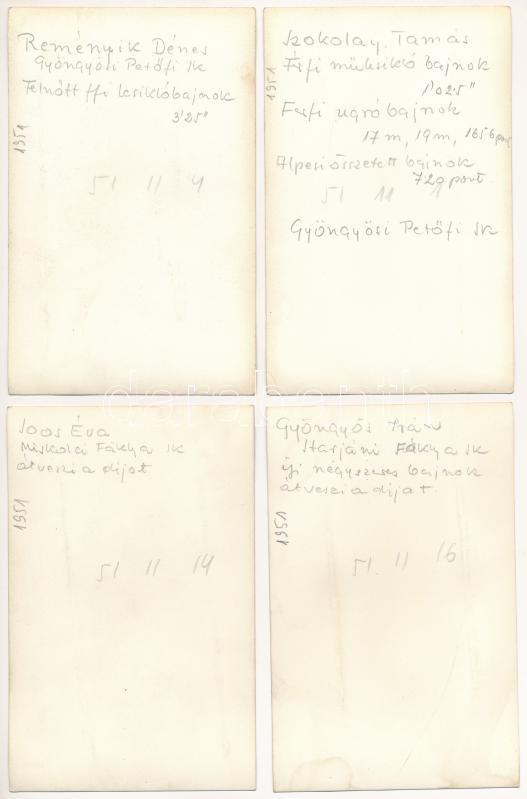 Reményik Dénes
Gyöngyösi Petőfi SK
Felnőtt ffi lesiklóbajnok
3'25"
1951
51 11 4
Szokolay Tamás
Férfi műlesikló bajnok
1'02.5"
Férfi ugróbajnok
17 m, 19 m, 165.6
Alpesi összetett bajnok
729 pont
1951
51 11 1
Gyöngyösi Petőfi SK
darabanth.com
Soós Éva
Miskolci Fáklya SK
átveszi a díjat
1951
51 11 14
Gyöngyös
Fáklya SK
ifj négyszeres bajnok
átveszi a díjat.
1951
51. 11 16